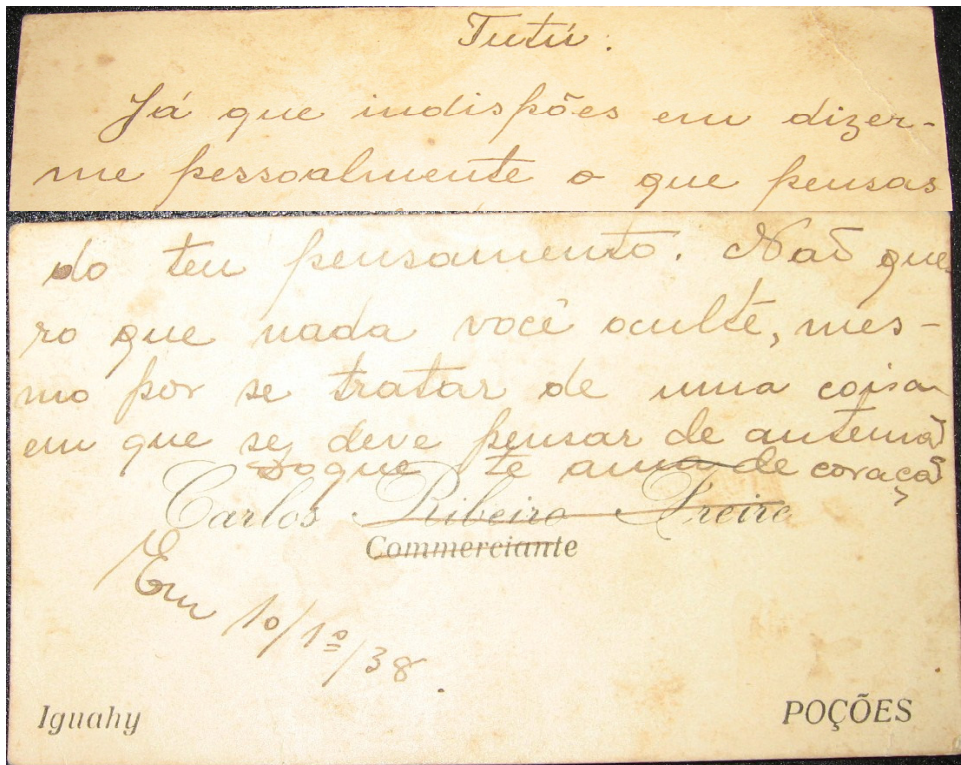 Tutú:
Já que indispões em dizer-
me pessoalmente o que pensas
do teu pensamento. Naõ que
ro que nada você oculte, mes-
mo por se tratar de uma coisa
em que se deve pensar de antemaõ
Do que te ama de coraçaõ
Carlos Ribeiro Freire
Commerciante
Em 10/1º/38.
Iguahy
POÇÕES